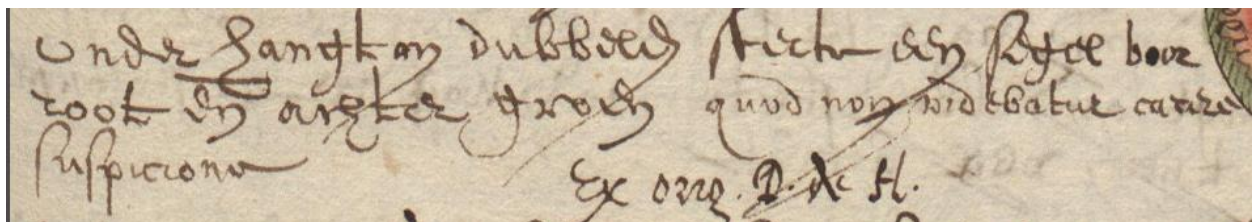 Under hangt in dubbelen sterte een segel voor
root en achter groen quod non videbatur carere
suspicione
Ex orig. D. de H.